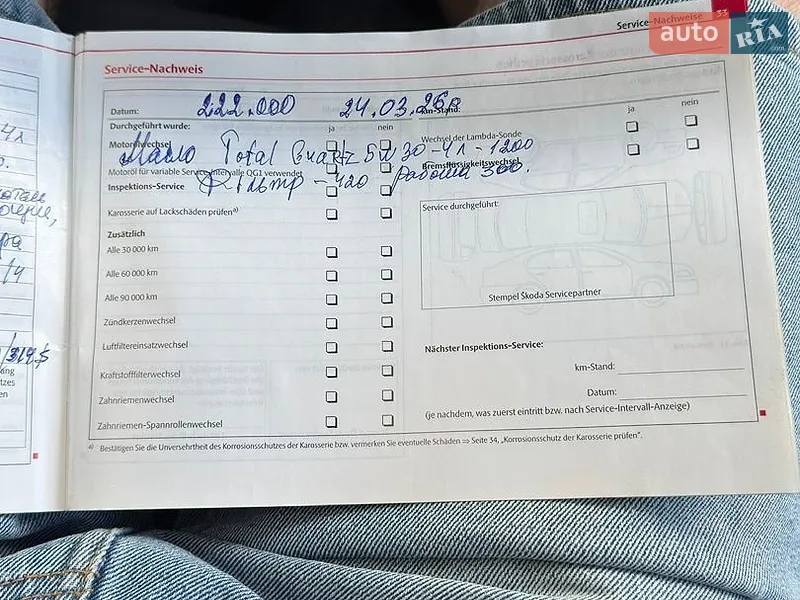 Service-Nachweise 33
auto RIA
.com
Service-Nachweis
Datum: 222.000 24.03.26р km-Stand:
Durchgeführt wurde: ja nein
ja nein
Motorölwechsel
Масло Total Quartz 5W30-4л-1200
Wechsel der Lambda-Sonde
Motoröl für variable Service-Intervalle QG1 verwendet
Bremsflüssigkeitswechsel
Фільтр - 420 робота 300.
Inspektions-Service
Karosserie auf Lackschäden prüfenᵃ⁾
Service durchgeführt:
Zusätzlich
Alle 30 000 km
Alle 60 000 km
Alle 90 000 km
Stempel Škoda Servicepartner
Zündkerzenwechsel
Luftfiltereinsatzwechsel
Nächster Inspektions-Service:
Kraftstofffilterwechsel
km-Stand:
Zahnriemenwechsel
Datum:
Zahnriemen-Spannrollenwechsel
(je nachdem, was zuerst eintritt bzw. nach Service-Intervall-Anzeige)
ᵃ⁾ Bestätigen Sie die Unversehrtheit des Korrosionsschutzes der Karosserie bzw. vermerken Sie eventuelle Schäden ⇒ Seite 34, „Korrosionsschutz der Karosserie prüfen".